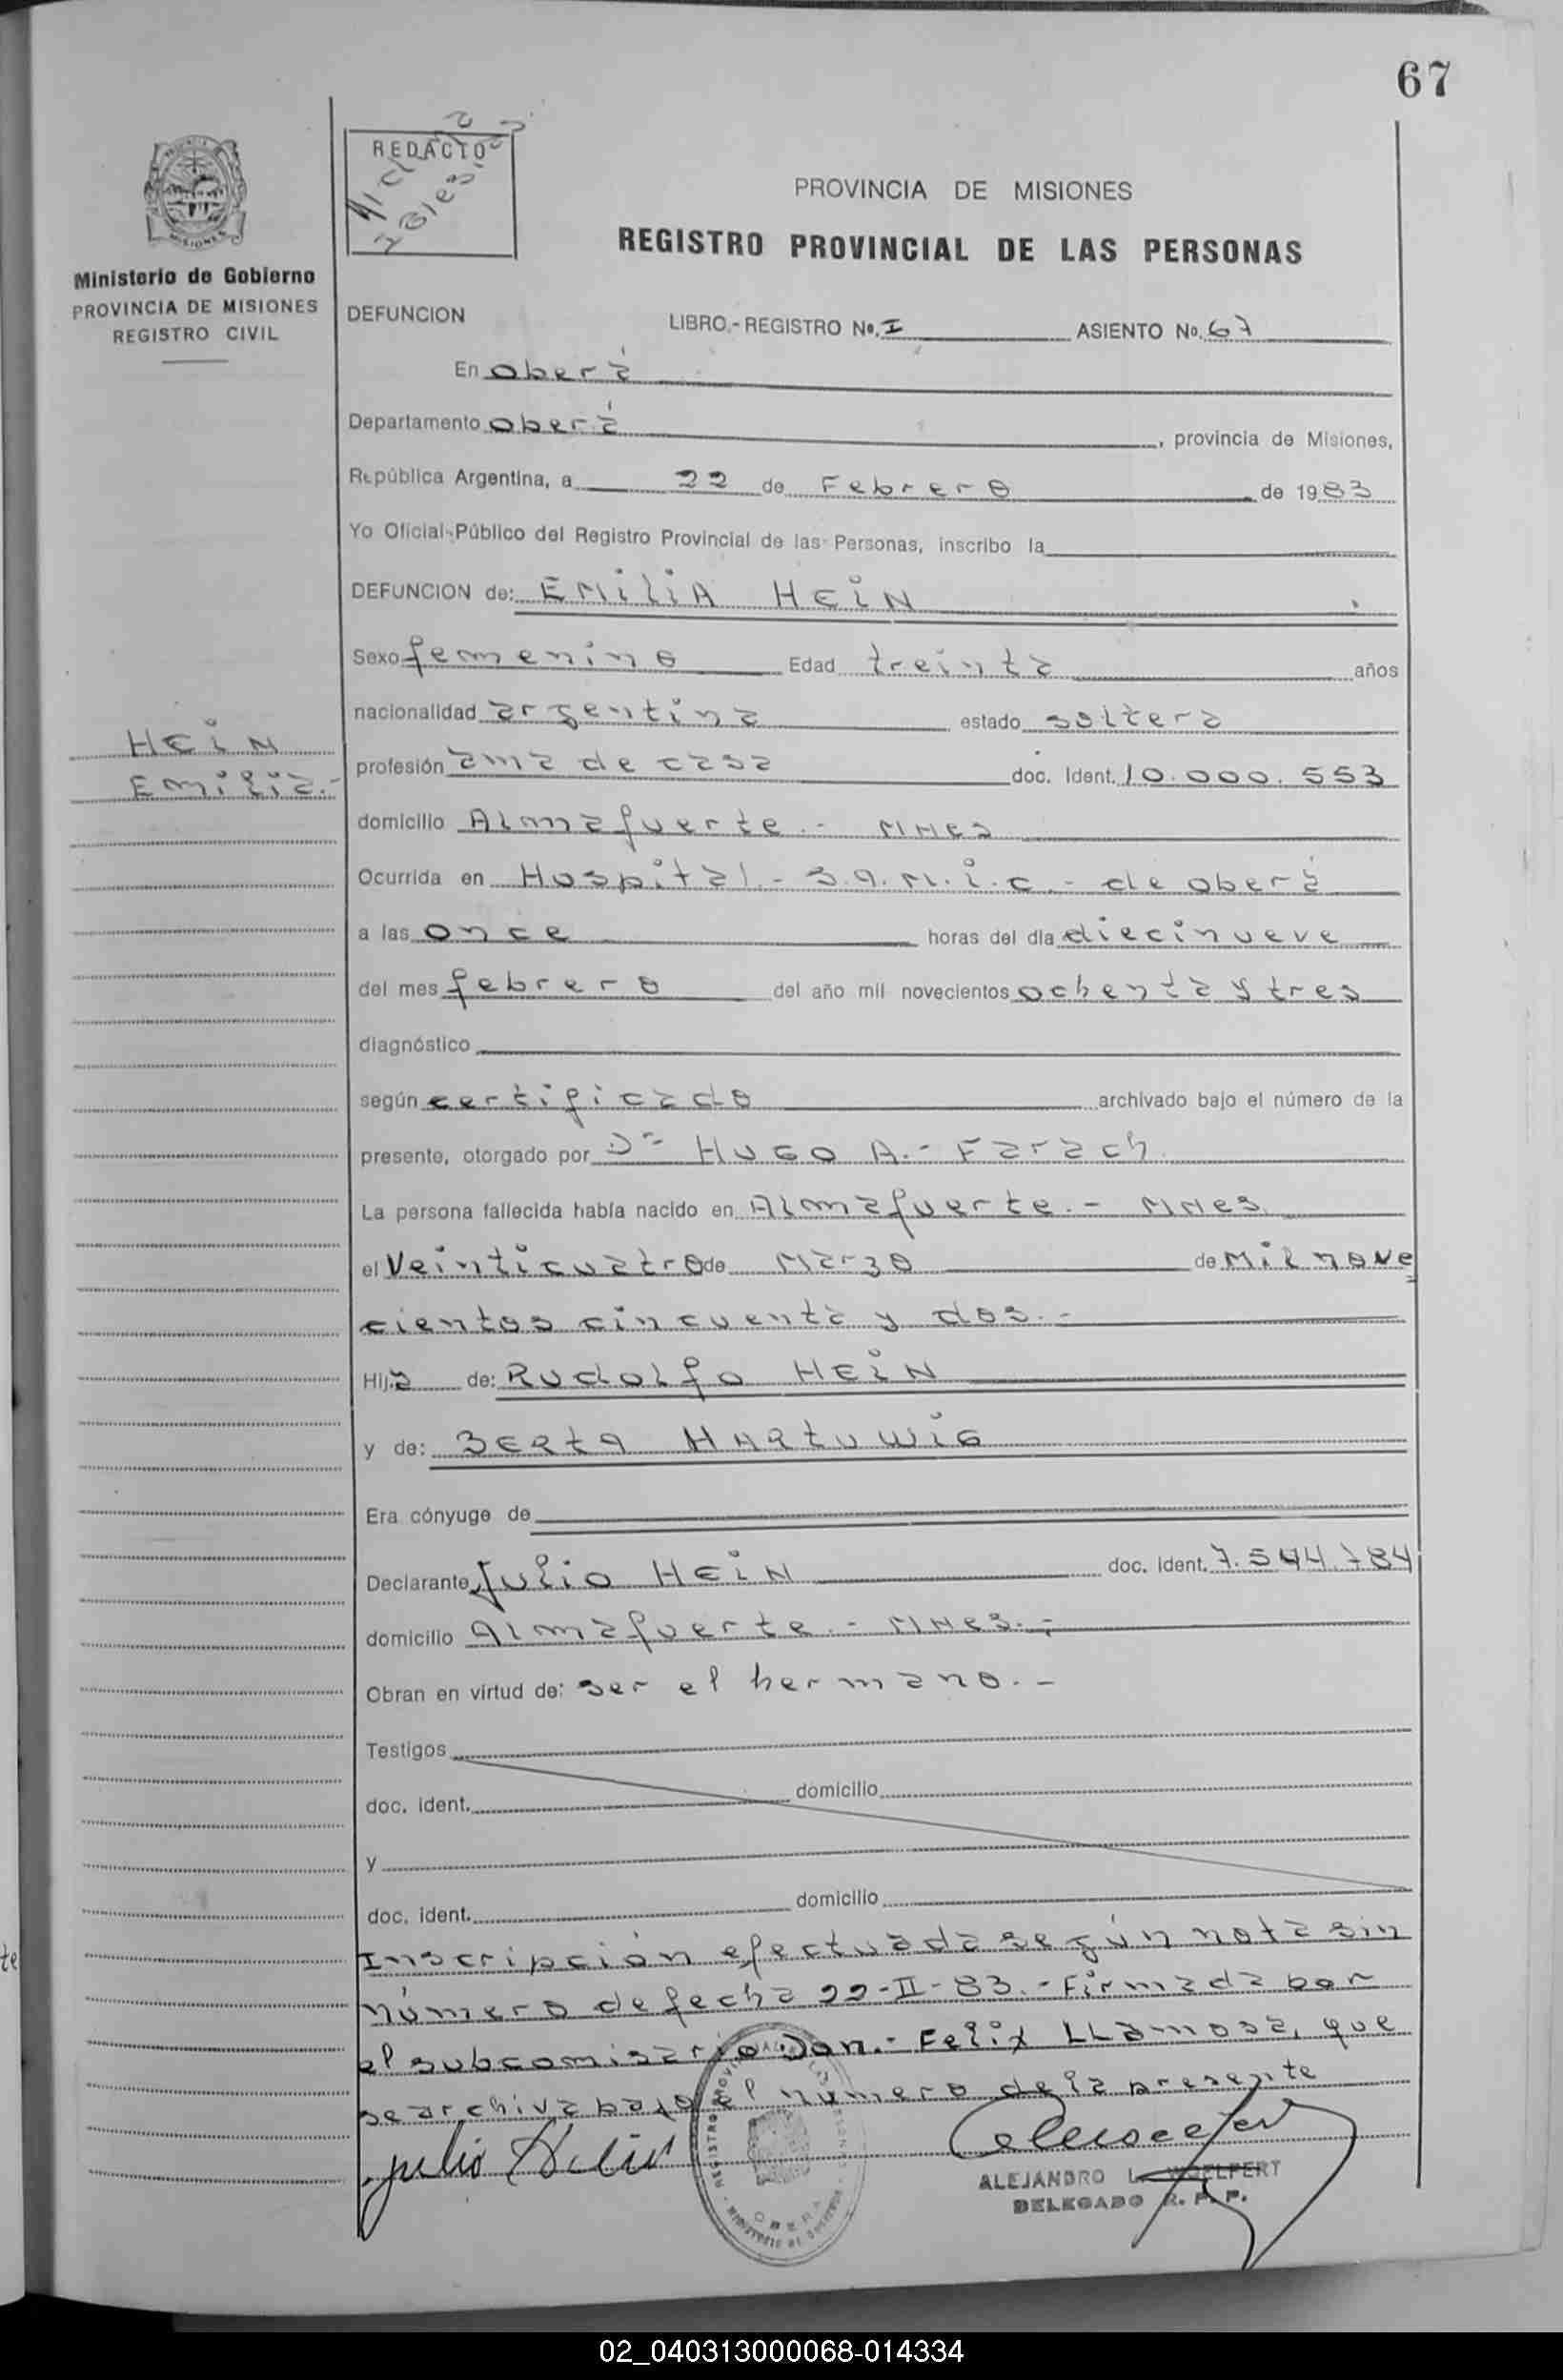 67
REDACTO
PROVINCIA DE MISIONES
REGISTRO PROVINCIAL DE LAS PERSONAS
MISIONES
Ministerio de Gobierno
PROVINCIA DE MISIONES
REGISTRO CIVIL
DEFUNCION LIBRO.-REGISTRO Nº. I ASIENTO Nº. 67
En Oberá
Departamento Oberá, provincia de Misiones,
República Argentina, a 22 de Febrero de 1983
Yo Oficial Público del Registro Provincial de las Personas, inscribo la
DEFUNCION de: EMiLiA HEiN
Sexo femenino Edad treinta años
nacionalidad argentina estado soltera
HEiN
Emilia.-
profesión ama de casa doc. Ident. 10.000.553
domicilio Almafuerte.- MNes
Ocurrida en Hospital.- S.A.M.i.c.- de oberá
a las once horas del día diecinueve
del mes febrero del año mil novecientos ochenta y tres
diagnóstico
según certificado archivado bajo el número de la
presente, otorgado por Dr HUGO A.- Farach
La persona fallecida había nacido en Almafuerte.- MNes
el Veinticuatro de Marzo de Mil nove
cientos cincuenta y dos.-
Hija de: RUdolfo HEiN
y de: BERtA HARtUWiG
Era cónyuge de
Declarante Julio HEiN doc. Ident. 7.544.784
domicilio Almafuerte.- MNes.-
Obran en virtud de: ser el hermano.-
Testigos
doc. ident. domicilio
y
doc. ident. domicilio
Inscripción efectuada según nota sin
número de fecha 22-II-83.- Firmada por
el subcomisario Don.- Felix LLamosa, que
se archiva bajo el número de la presente
julio Hein
ALEJANDRO L. WOELFERT
DELEGADO R. P. P.
OBERA
te
02_040313000068-014334